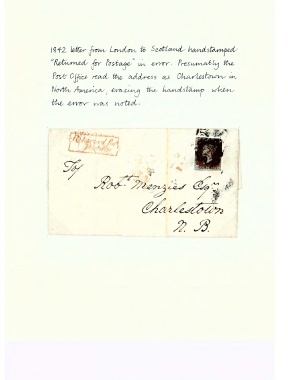 1842 letter from London to Scotland handstamped
"Returned for Postage" in error. Presumably the
Post Office read the address as Charlestown in
North America, erasing the handstamp when
the error was noted.
Returned for
To/
Robt. Menzies Esqr.
Charlestown
N. B.